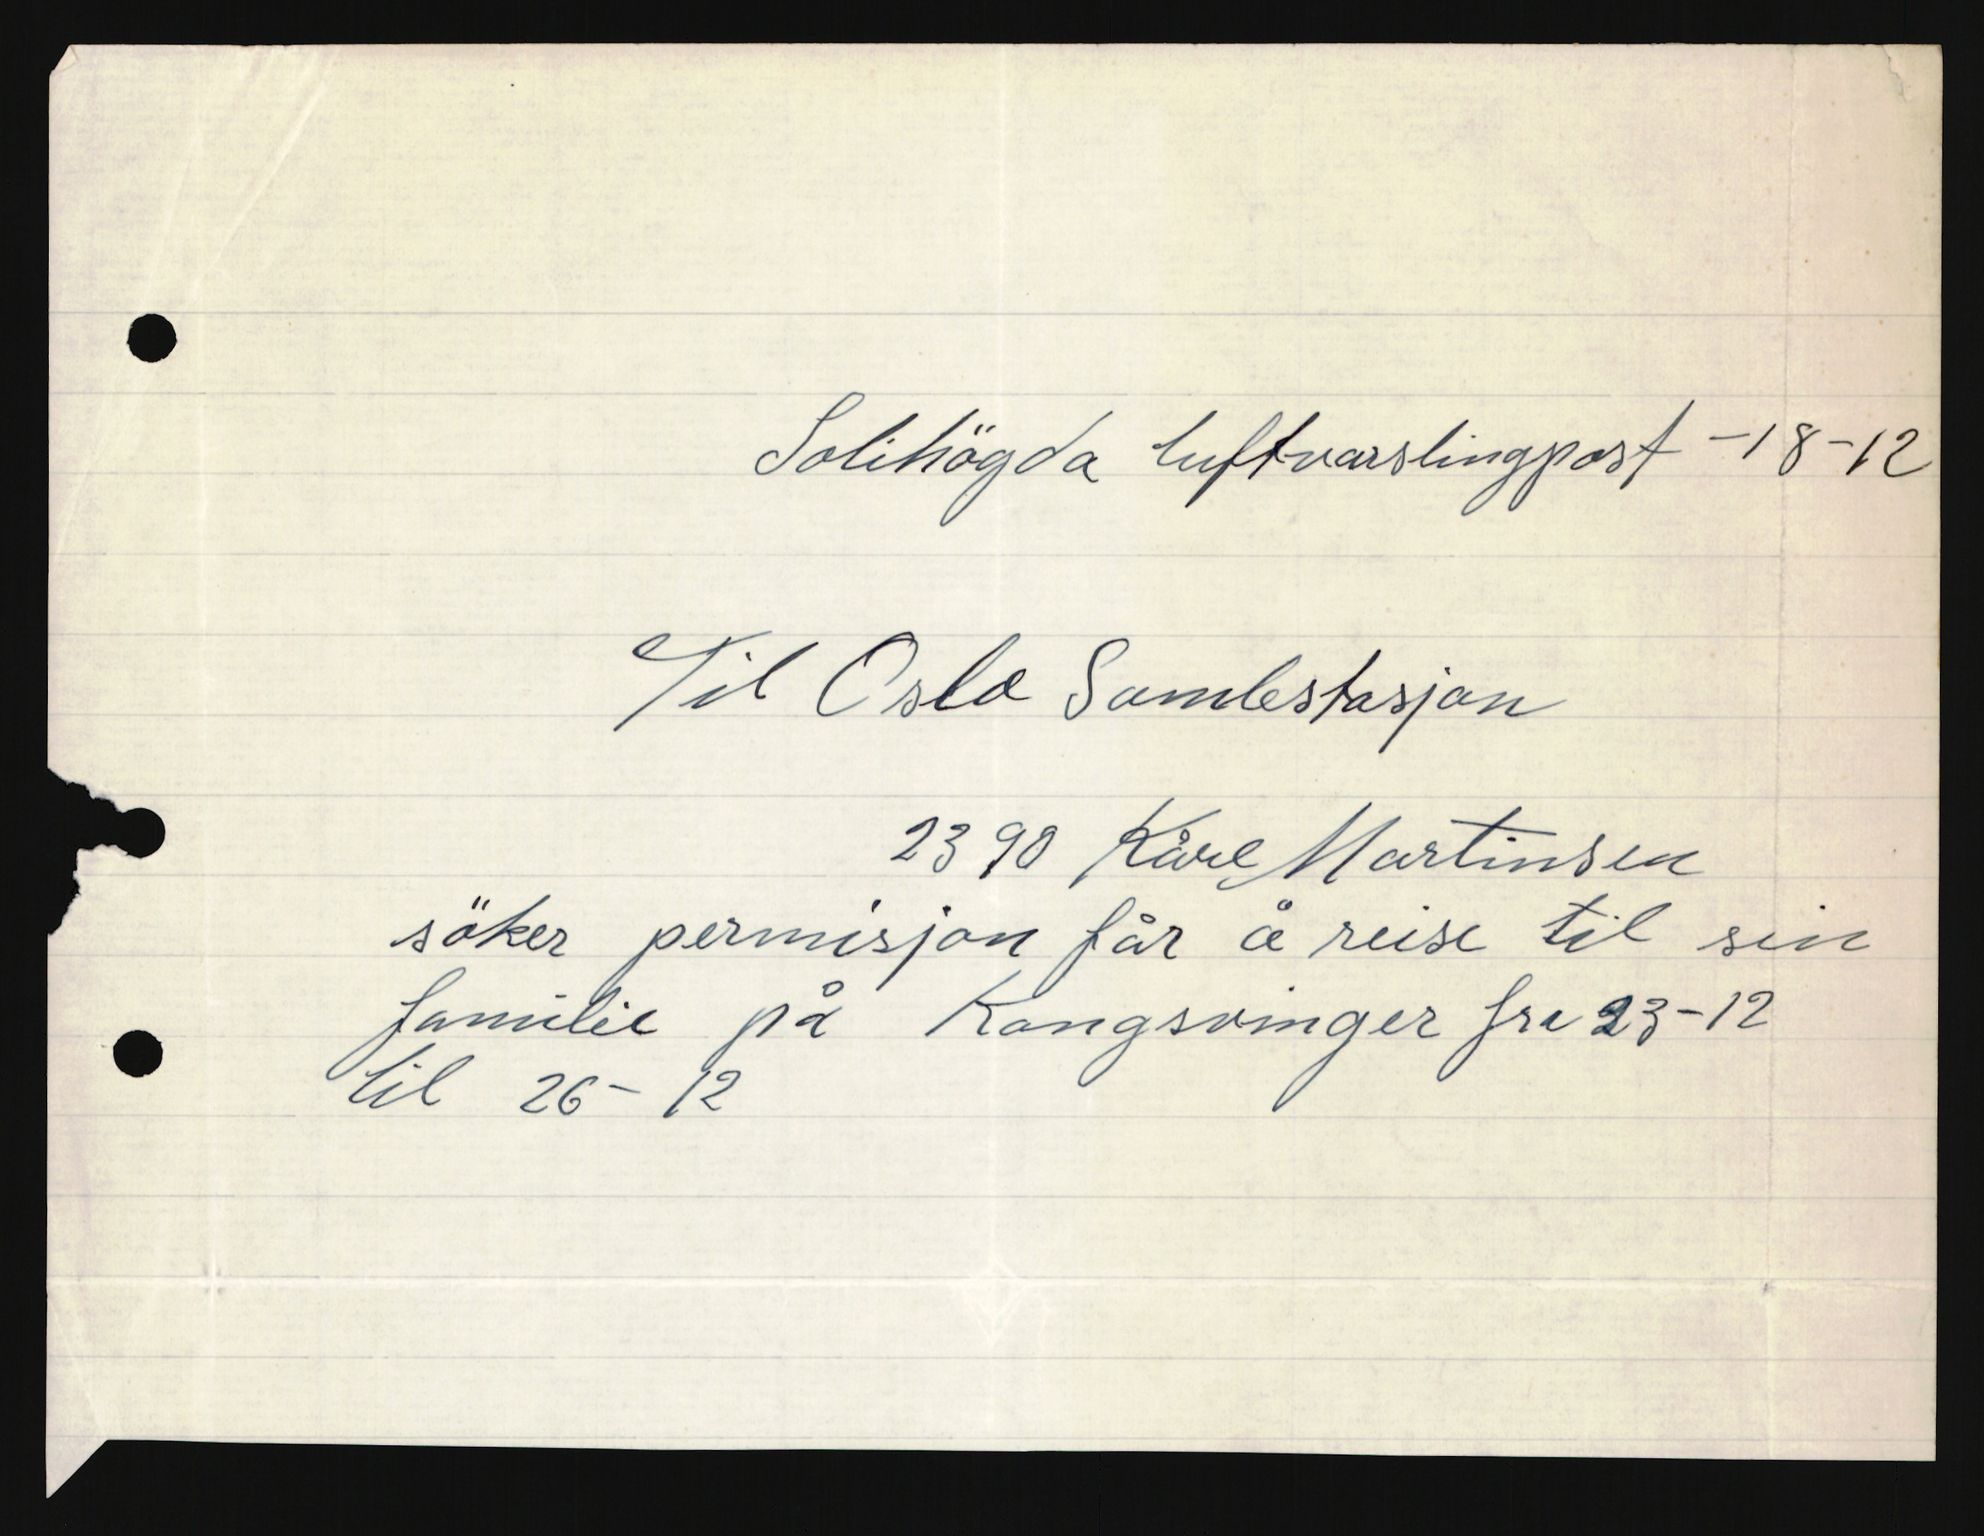 Solihögda luftvarslingpost -18-12
Til Oslo Samlestasjon
2390 Kåre Martinsen
söker permisjon får å reise til sin
familie på Kongsvinger fra 23-12
til 26-12